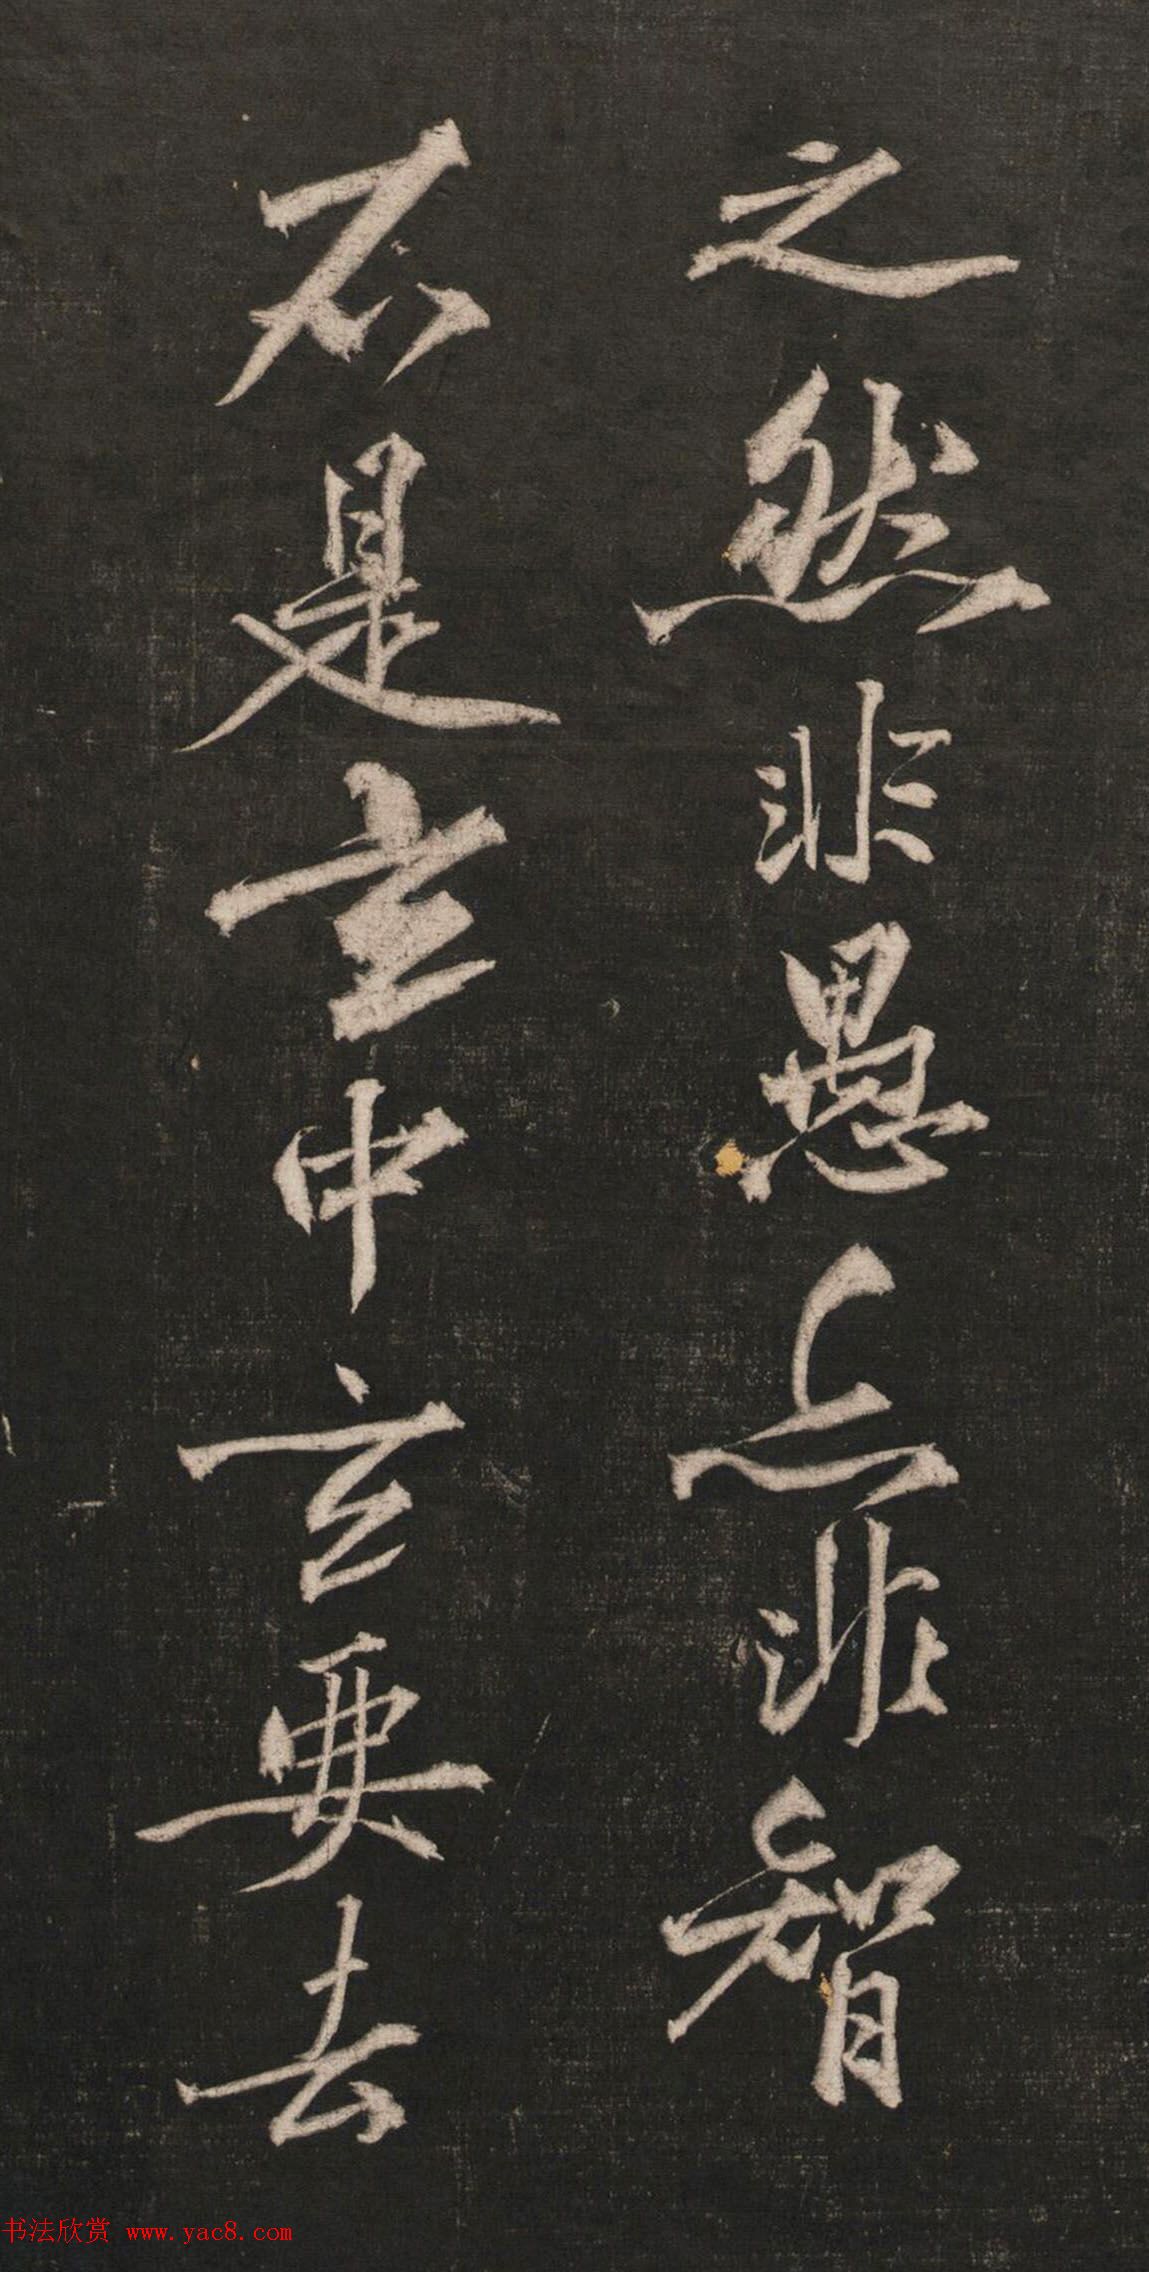 之然非愚亦非智
不是玄中玄要去
书法欣赏 www.yac8.com